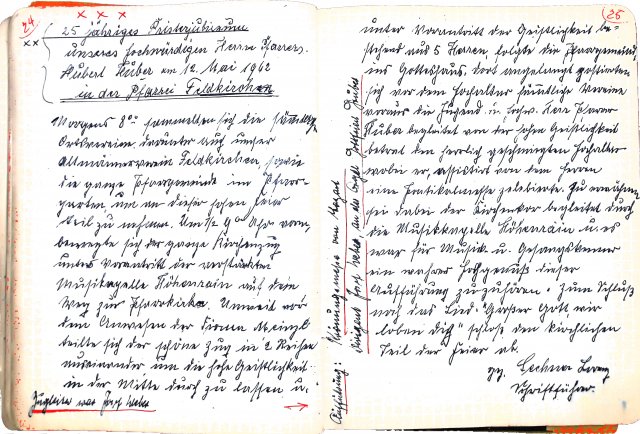 24
x x x
xx
25 jähriges Priesterjubiläum
unseres hochwürdigen Herrn Pfarrers
Hubert Huber am 12. Mai 1962
in der Pfarrei Feldkirchen
Morgens 8°° sammelten sich die sämtl.
Ortsvereine darunter auch unser
Altmännerverein Feldkirchen, sowie
die ganze Pfarrgemeinde im Pfarr-
garten um an dieser hohen Feier
teil zu nehmen. Um ½ 9 Uhr vorm.
bewegte sich der ganze Kirchenzug
unter Vorantritt der verstärkten
Musikapelle Höhenrain auf dem
Weg zur Pfarrkirche. Unweit vor
dem Anwesen der Firma
teilte sich der schöne Zug in 2 Reihen
auseinander um die hohe Geistlichkeit
in der Mitte durch zu lassen u.
Zugleiter war Josef Weber
→
25
unter Vorantritt der Geistlichkeit be-
stehend aus 5 Herren, folgte die Pfarrgemeinde
ins Gotteshaus, dort angelangt postierten
sich vor dem Hochaltar sämmtliche Vereine
voraus die Jugend u. hochw. Herr Pfarrer
Huber begleitet von der hohen Geistlichkeit
betrat den herrlich geschmückten Hochaltar
wobei er, assistiert von den Herren
eine zelebrierte. Zu erwähnen
sei dabei der Kirchenkor begleitet durch
die Musikkapelle Höhenrain u. es
war für Musik u. Gesangskenner
ein wahrer Hochgenuß dieser
Aufführung zuzuhören. Zum Schluß
noch das Lied "Großer Gott wir
loben dich" schloß den kirchlichen
Teil der Feier ab.
gez. Lechner Lorenz
Schriftführer.
Aufführung: Krönungsmesse von Mozart
Dirigent Josef Weber, an der Orgel Huber